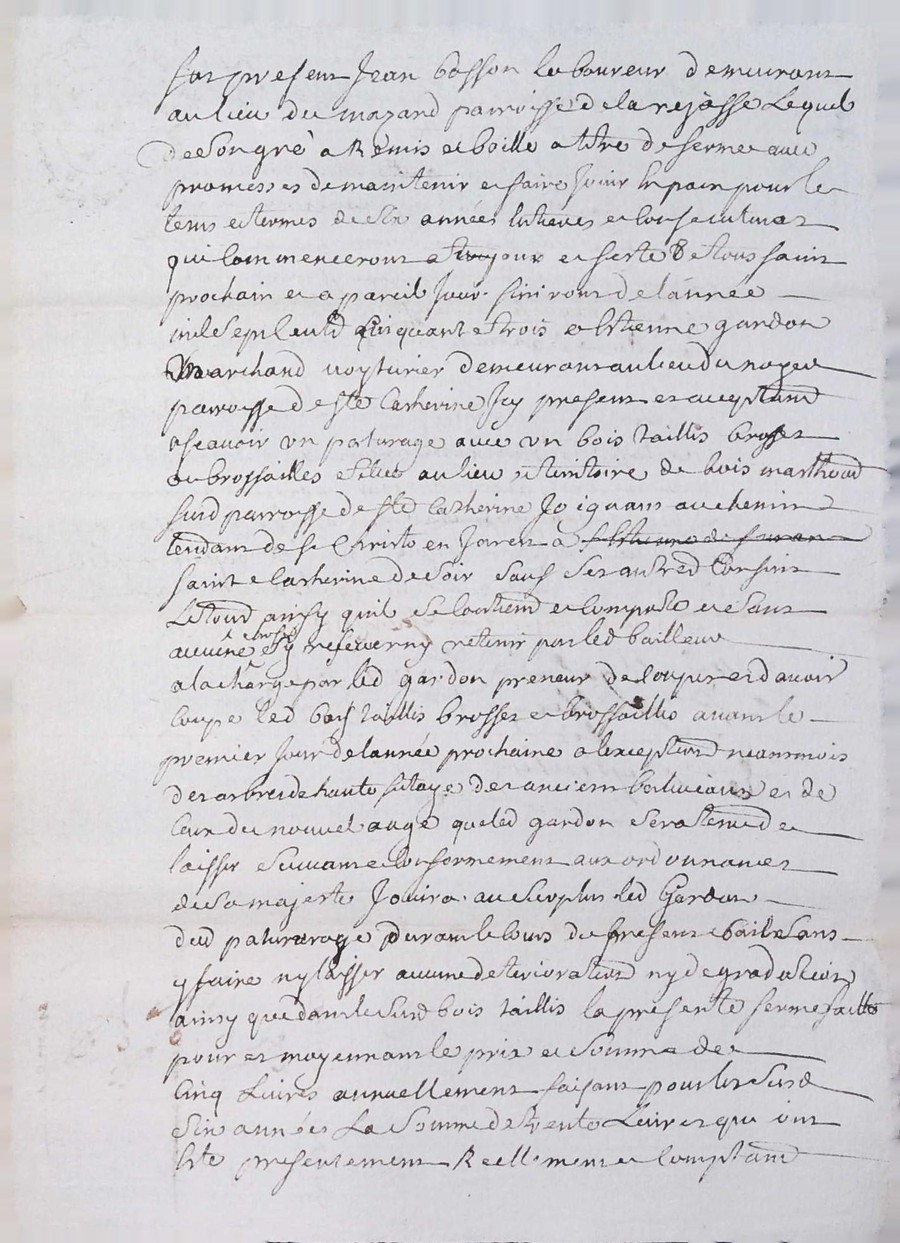 fut present Jean basson laboureur demeurant
au lieu du mazard parroisse de la rejasse Lequel
de Son gré a Remis et baille a titre de ferme avec
promesses de maintenir et faire Jouir En paix pour le
tems et termes de Six années Entieres et Consecutives
qui Commenceront a jour et feste de toussaint
prochain et a pareil Jour finiront de l'année
mil Sept Cents Cinquante trois a Estienne gardon
Marchand voyturier demeurant au lieu du noyer
parroisse de Ste Catherine Icy present et acceptant
a scavoir un paturage avec un bois taillis brosses
et brossailles Situé au lieu et territoire de bois marthoud
susd parroisse de Ste Catherine Joignant au chemin
tendant de St Christo en Jarez a
sainte Catherine de soir Sauf Ses autres Confins
Le tout ainsy qu'il Se Contient et Comporte et Sans
aucune chose Sy reserver ny retenir par led bailleur
a la charge par led gardon preneur de Couper et d'avoir
Coupé led bois taillis brosses et brossailles avant le
premier Jour de l'année prochaine a l'exception neanmoins
des arbres de haute futaye des anciens baliveaux et de
Ceux du nouvel auge que led gardon Sera tenu de
laisser Suivant et Conformement aux ordonnances
de Sa majesté Jouira au Surplus led Gardon
dud paturage durant le Cours du present bail Sans
y faire ny laisser aucune deterioration ny degradation
ainsy que dans le Susd bois taillis la presente ferme faitte
pour et moyennant le prix et Somme de
Cinq Livres annuellement faisant pour les Susd
Six années La Somme de trente Livres qui ont
Esté presentement Reellement et Comptant